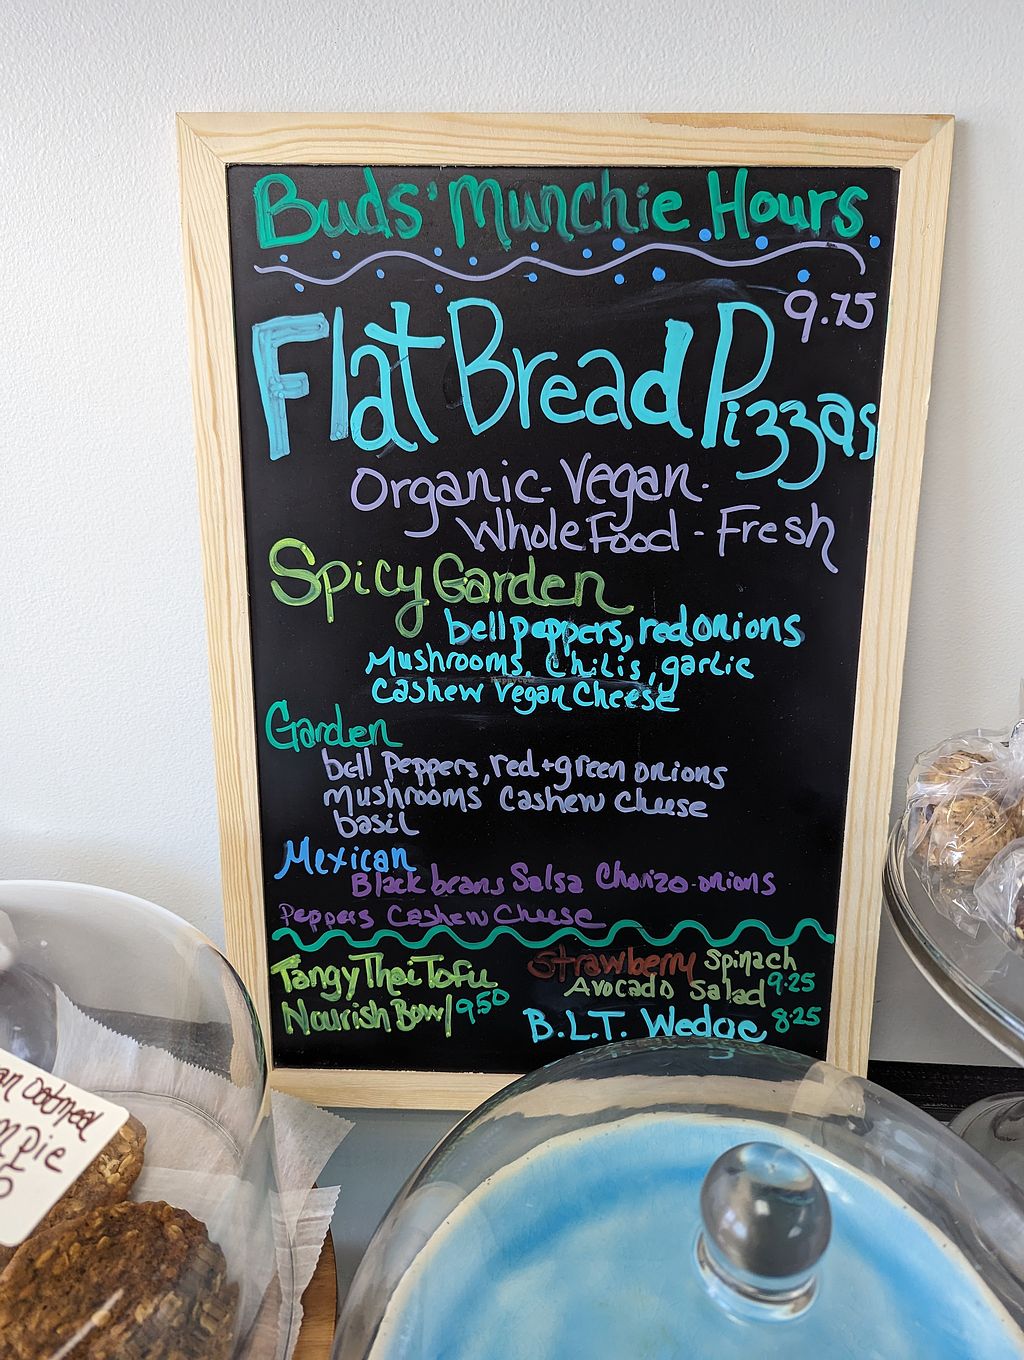 Buds' Munchie Hours
9.75
Flat Bread Pizzas
Organic-Vegan-
Whole Food - Fresh
Spicy Garden
bell peppers, red onions
Mushrooms, Chilis, garlic
Cashew Vegan Cheese
Garden
bell peppers, red+green onions
mushrooms Cashew Cheese
basil
Mexican
Black beans Salsa Chorizo-onions
Peppers Cashew Cheese
Tangy Thai Tofu
Nourish Bowl 9.50
Strawberry Spinach
Avocado Salad 9.25
B.L.T. Wedge 8.25
an oatmeal
Pie